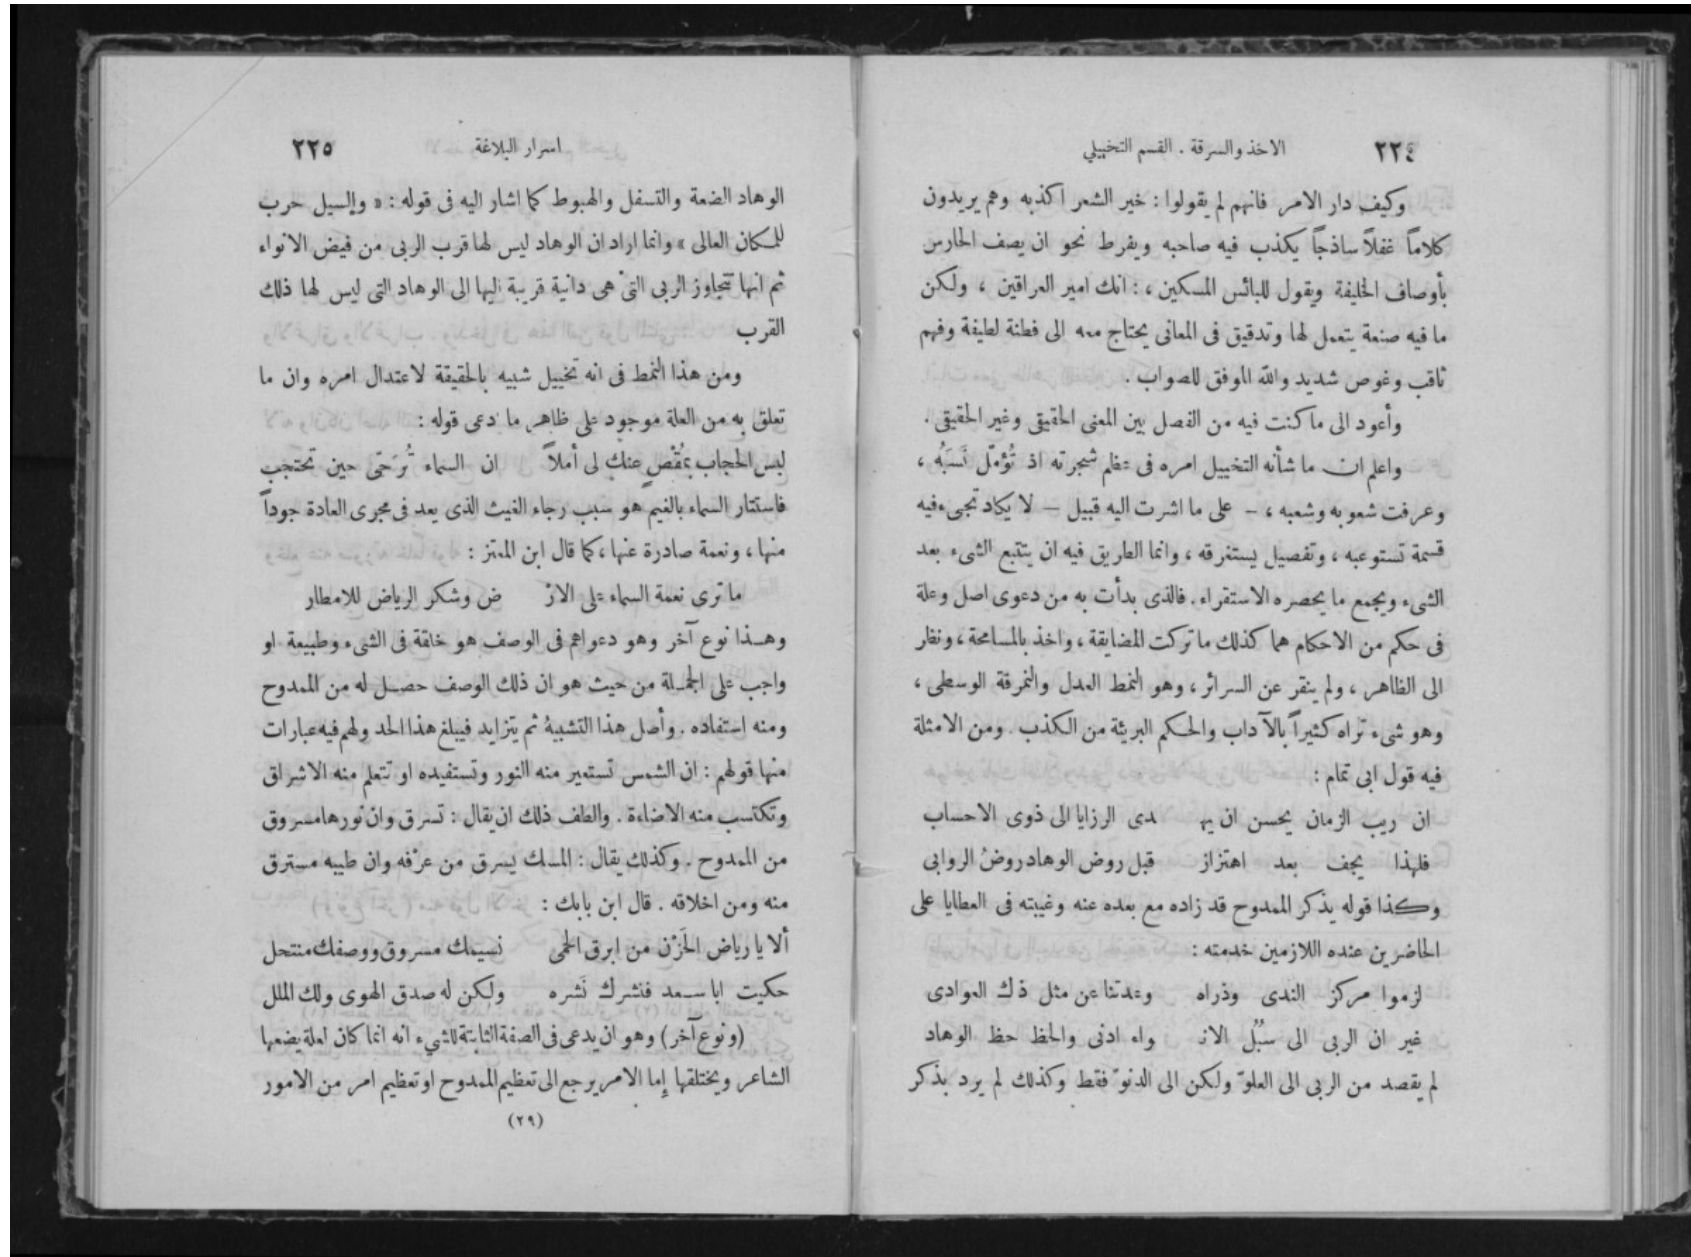 ٢٢٤ الاخذ والسرقة . القسم التخييلي
وكيف دار الامر فانهم لم يقولوا : خير الشعر اكذبه وهم يريدون
كلاماً غفلاً ساذجاً يكذب فيه صاحبه ويفرط نحو ان يصف الحارس
بأوصاف الخليفة ويقول للبائس المسكين ، : انك امير العراقين ، ولكن
ما فيه صنعة يتعمل لها وتدقيق فى المعانى يحتاج معه الى فطنة لطيفة وفهم
ثاقب وغوص شديد والله الموفق للصواب .
وأعود الى ما كنت فيه من الفصل بين المعنى الحقيقى وغير الحقيقى .
واعلم ان ما شأنه التخييل امره فى عظم شجرته اذ تُؤمّل نَسَبُه ،
وعرفت شعوبه وشعبه ، – على ما اشرت اليه قبيل – لا يكاد تجىء فيه
قسمة تستوعبه ، وتفصيل يستغرقه ، وانما الطريق فيه ان يتتبع الشىء بعد
الشىء ويجمع ما يحصره الاستقراء . فالذى بدأت به من دعوى اصل وعلة
فى حكم من الاحكام هما كذلك ما تركت المضايقة ، واخذ بالمسامحة ، ونظر
الى الظاهر ، ولم ينقر عن السرائر ، وهو النمط العدل والنمرقة الوسطى ،
وهو شىء تراه كثيراً بالآداب والحكم البريئة من الكذب . ومن الامثلة
فيه قول ابى تمام :
ان ريب الزمان يحسن ان يهـ ـدى الرزايا الى ذوى الاحساب
فلهذا يجف بعد اهتزاز قبل روض الوهاد روضُ الروابى
وكذا قوله يذكر الممدوح قد زاده مع بعده عنه وغيبته فى العطايا على
الحاضرين عنده اللازمين خدمته :
لزموا مركز الندى وذراه وعدتنا عن مثل ذك العوادى
غير ان الربى الى سُبُل الانـ ـواء ادنى والحظ حظ الوهاد
لم يقصد من الربى الى العلوّ ولكن الى الدنوّ فقط وكذلك لم يرد بذكر
اسرار البلاغة ٢٢٥
الوهاد الضعة والتسفل والهبوط كما اشار اليه فى قوله : « والسيل حرب
للمكان العالى » وانما اراد ان الوهاد ليس لها قرب الربى من فيض الانواء
ثم انها تتجاوز الربى التى هى دانية قريبة اليها الى الوهاد التى ليس لها ذلك
القرب
ومن هذا النمط فى انه تخييل شبيه بالحقيقة لاعتدال امره وان ما
تعلق به من العلة موجود على ظاهر ما دعى قوله :
ليس الحجاب بمُقْصٍ عنك لى أملاً ان السماء تُرَجَّى حين تحتجب
فاستتار السماء بالغيم هو سبب رجاء الغيث الذى يعد فى مجرى العادة جوداً
منها ، ونعمة صادرة عنها ، كما قال ابن المعتز :
ما ترى نعمة السماء على الارْ ض وشكر الرياض للامطار
وهـذا نوع آخر وهو دعواهم فى الوصف هو خلقة فى الشىء وطبيعة او
واجب على الجملة من حيث هو ان ذلك الوصف حصل له من الممدوح
ومنه استفاده . وأصل هذا التشبيه ثم يتزايد فيبلغ هذا الحد ولهم فيه عبارات
منها قولهم : ان الشمس تستعير منه النور وتستفيده او تتعلم منه الاشراق
وتكتسب منه الاضاءة . والطف ذلك ان يقال : تسرق وان نورها مسروق
من الممدوح . وكذلك يقال : المسك يسرق من عرْفه وان طيبه مسترق
منه ومن اخلاقه . قال ابن بابك :
ألا يا رياض الحَزْن من ابرق الحمى نسيمك مسروق ووصفك منتحل
حكيت ابا سـعد فنشرك نَشره ولكن له صدق الهوى ولك الملل
(ونوع آخر) وهو ان يدعى فى الصفة الثابتة للشىء انه انما كان لعلة يضعها
الشاعر ويختلقها إما الامر يرجع الى تعظيم الممدوح او تعظيم امر من الامور
(٢٩)